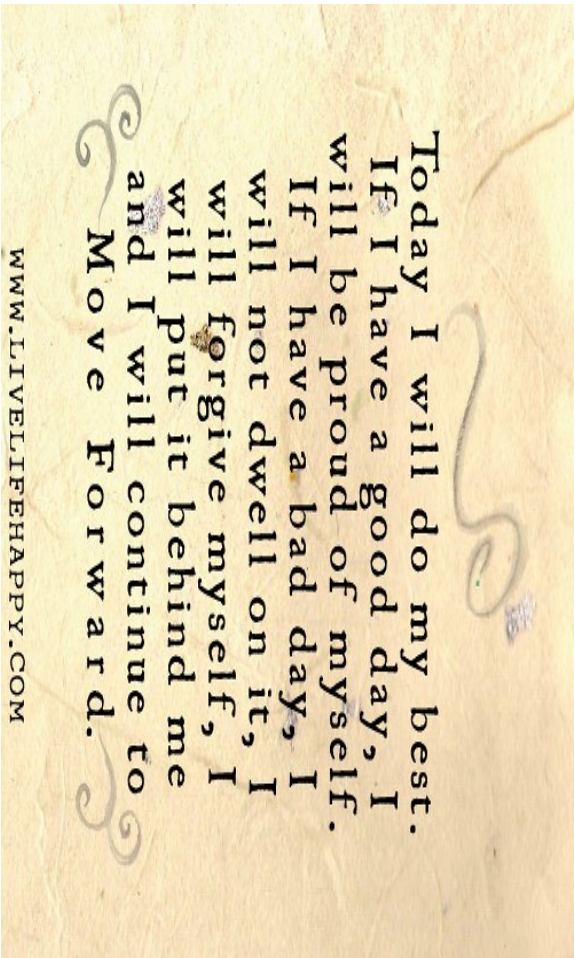 Today I will do my best.
If I have a good day, I
will be proud of myself.
If I have a bad day, I
will not dwell on it, I
will forgive myself, I
will put it behind me
and I will continue to
Move Forward.
WWW.LIVELIFEHAPPY.COM